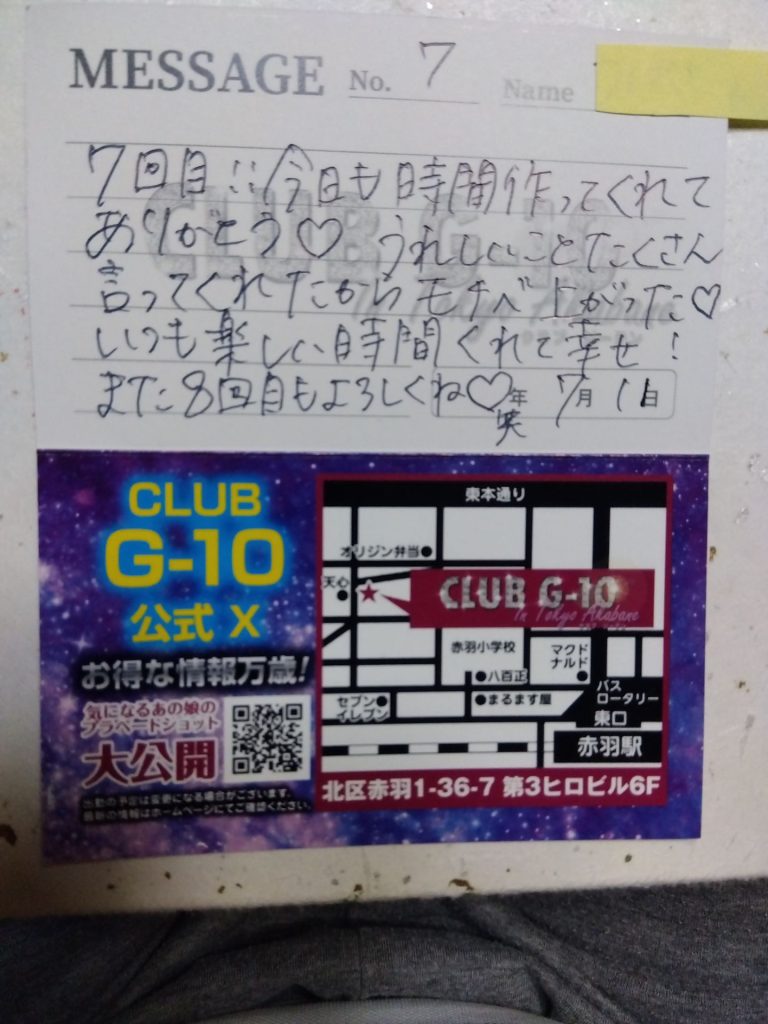 MESSAGE No. 7 Name
7回目!!今日も時間作ってくれて
ありがとう♡ うれしいことたくさん
言ってくれたからモチベ上がった♡
いつも楽しい時間くれて幸せ!
また8回目もよろしくね♡笑
年 7月 1日
CLUB G-10
In Tokyo Akabane
CLUB
G-10
公式 X
お得な情報万歳!
気になるあの娘の
プラベートショット
大公開
出勤の予定は変更になる場合がございます。
最新の情報はホームページにてご確認ください。
東本通り
オリジン弁当
天心
CLUB G-10
In Tokyo Akabane
赤羽小学校
マクド
ナルド
八百正
セブン
イレブン
まるます屋
バス
ロータリー
東口
赤羽駅
北区赤羽1-36-7 第3ヒロビル6F